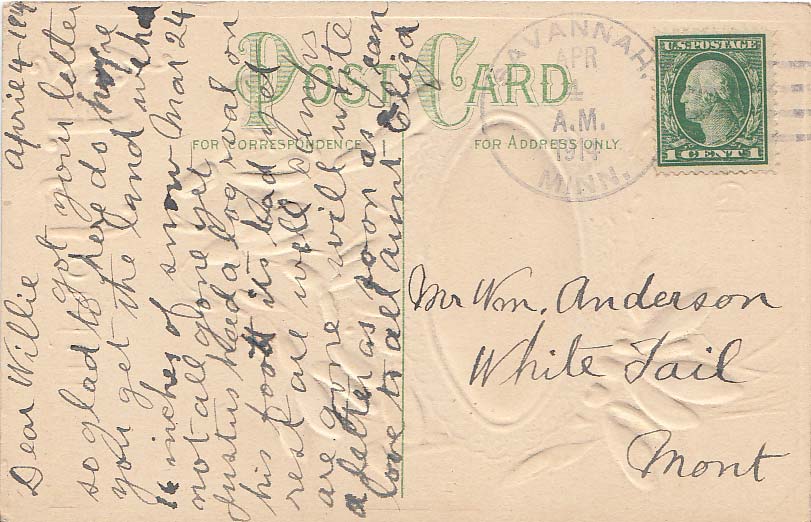 POST CARD
FOR CORRESPONDENCE
FOR ADDRESS ONLY.
SAVANNAH,
APR
4
A.M.
1914
MINN.
U.S. POSTAGE
1 CENT 1
Aprie 4 - 194
Dear Willie
so glad to got you letter
you get the land we had
16 inches of snow Mar 24
not all gone yet
Justus had a log roal on
his foott its bad yet
rest are well
are gone will write
a letter as soon as I can
love to all aint Eliza
Mr Wm. Anderson
White Tail
Mont